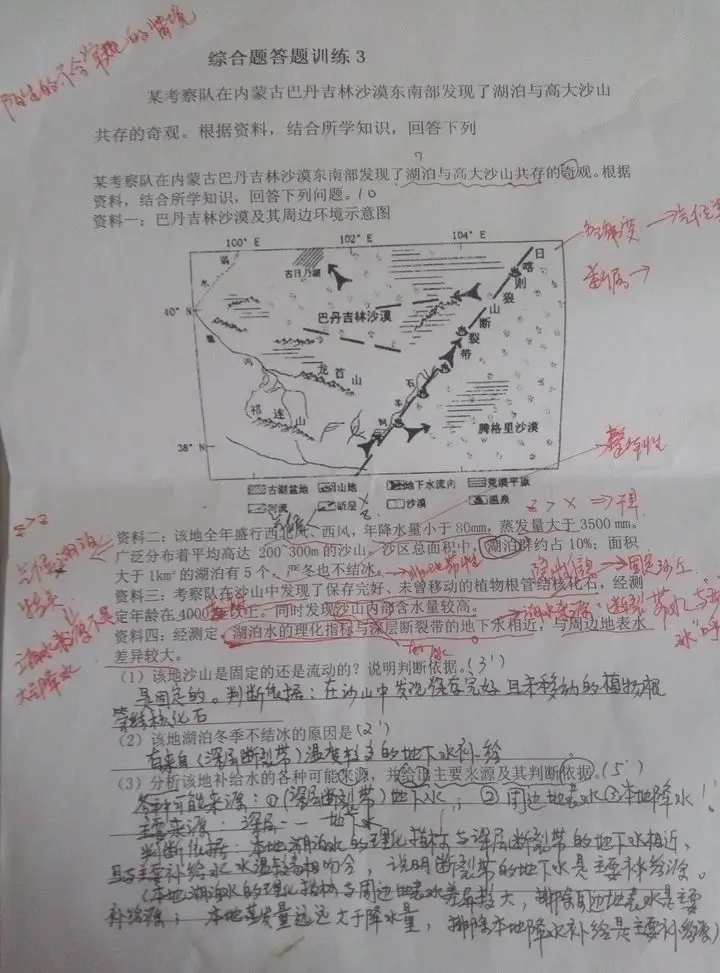 陌生的不合常规的情境
综合题答题训练3
某考察队在内蒙古巴丹吉林沙漠东南部发现了湖泊与高大沙山
共存的奇观。根据资料，结合所学知识，回答下列
某考察队在内蒙古巴丹吉林沙漠东南部发现了湖泊与高大沙山共存的奇观。根据
资料，结合所学知识，回答下列问题。10
资料一：巴丹吉林沙漠及其周边环境示意图
100°E 102°E 104°E
弱
水
古日乃湖
日
喀
则
狼
山
断
裂
带
40°N
巴丹吉林沙漠
河
龙首山
祁连山
石
羊
河
腾格里沙漠
38°N
古湖盆地 山地 地下水流向 荒漠平原
河流 断层 沙漠 温泉
整体性
资料二：该地全年盛行西北风、西风，年降水量小于80mm，蒸发量大于3500mm。
广泛分布着平均高达 200~300m的沙山。沙区总面积中，湖泊群约占10%；面积
大于1km²的湖泊有5个，严冬也不结冰。
资料三：考察队在沙山中发现了保存完好、未曾移动的植物根管结核化石，经测
定年龄在4000年以上。同时发现沙山内部含水量较高。
资料四：经测定，湖泊水的理化指标与深层断裂带的地下水相近，与周边地表水
差异较大。
（1）该地沙山是固定的还是流动的？说明判断依据。(3')
是固定的。判断依据：在沙山中发现保存完好且未移动的植物根
管结核化石
（2）该地湖泊冬季不结冰的原因是(2')
有来自(深层断裂带)温度较高的地下水补给
（3）分析该地补给水的各种可能来源，并给出主要来源及其判断依据。(5')
各种可能来源：①(深层断裂带)地下水；②周边地表水③本地降水
主要来源：深层……地下水
判断依据：本地湖泊水的理化指标与深层断裂带的地下水相近，
且与主要补给水水温较高相吻合，说明断裂带的地下水是主要补给源。
(本地湖泊水的理化指标与周边地表水差异较大，排除周边地表水是主要
补给源；本地蒸发量远远大于降水量，排除本地降水补给是主要补给源)